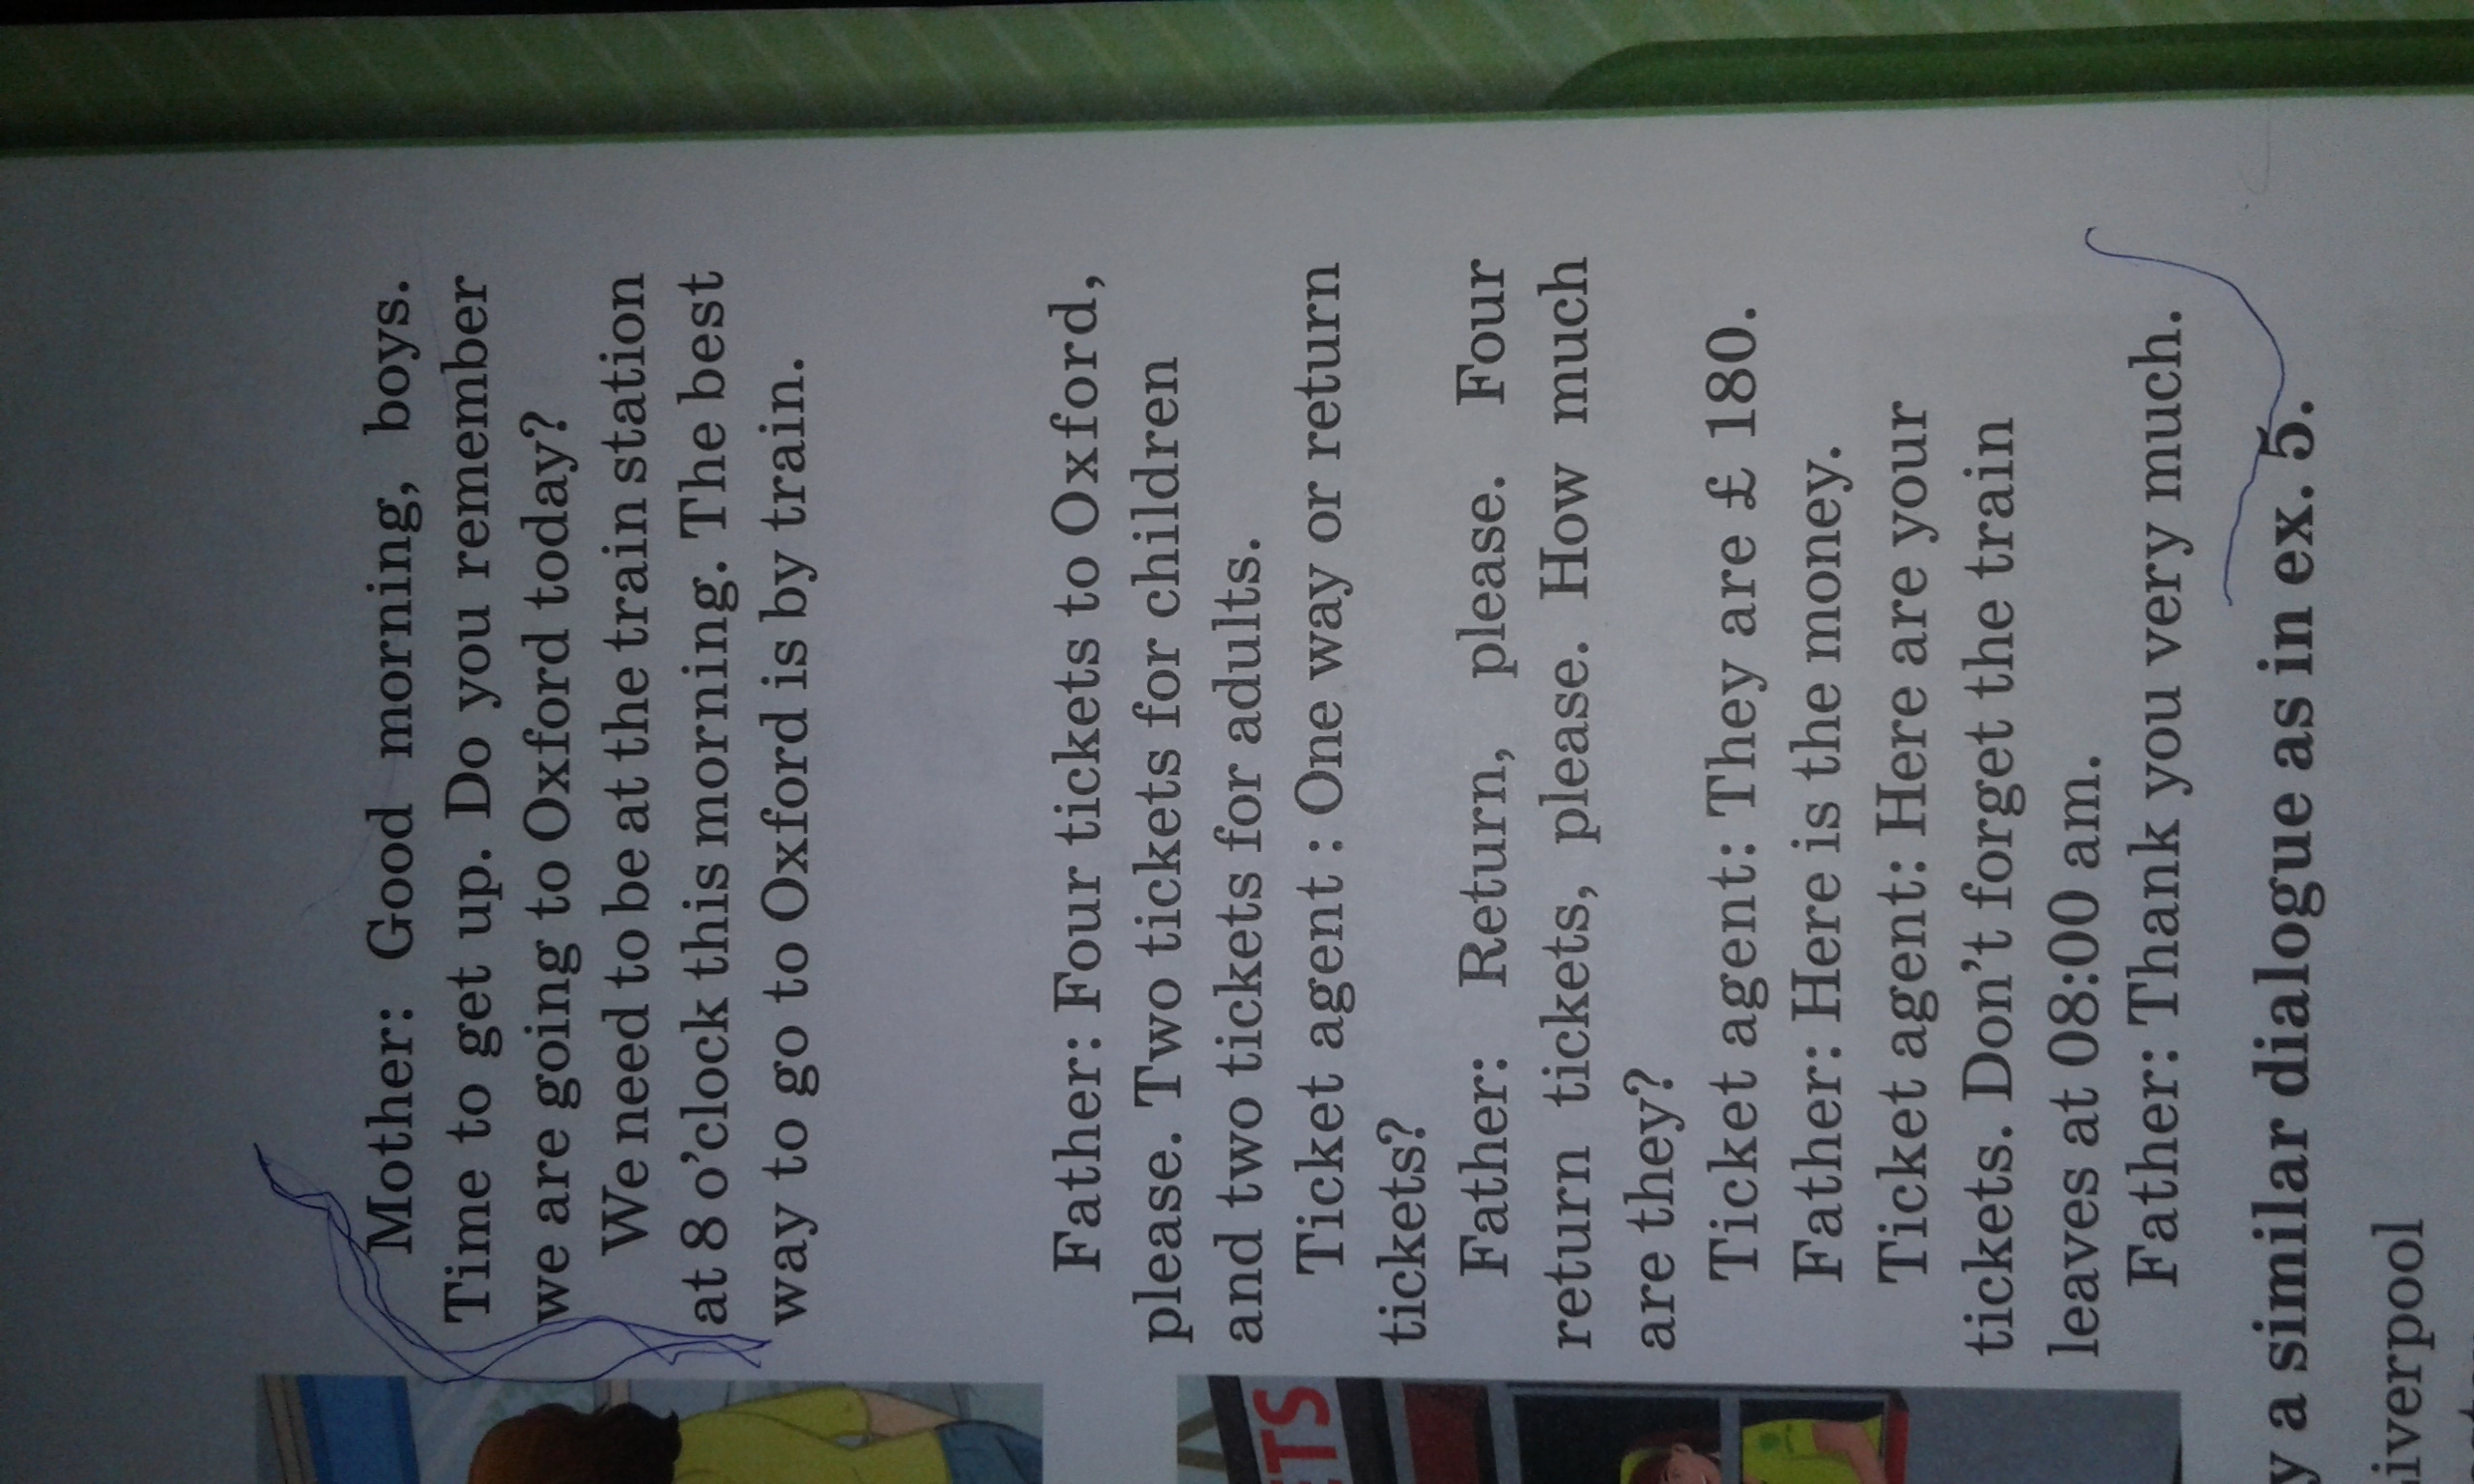 Mother: Good morning, boys.
Time to get up. Do you remember
we are going to Oxford today?
We need to be at the train station
at 8 o'clock this morning. The best
way to go to Oxford is by train.
Father: Four tickets to Oxford,
please. Two tickets for children
and two tickets for adults.
Ticket agent : One way or return
tickets?
Father: Return, please. Four
return tickets, please. How much
are they?
Ticket agent: They are £ 180.
Father: Here is the money.
Ticket agent: Here are your
tickets. Don't forget the train
leaves at 08:00 am.
Father: Thank you very much.
a similar dialogue as in ex. 5.